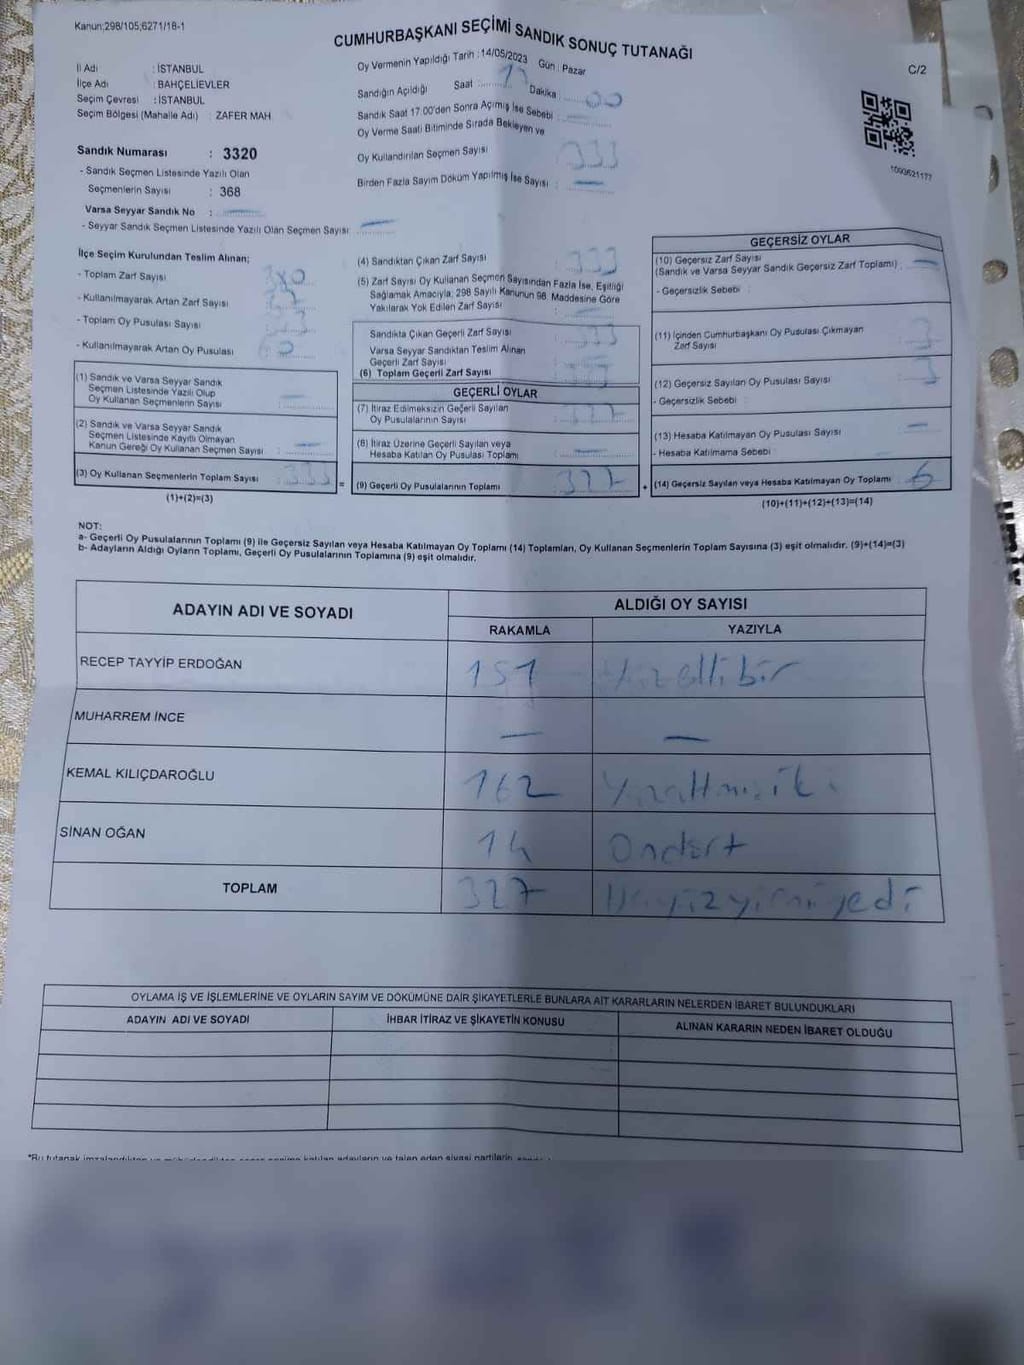 Kanun;298/105;6271/18-1
CUMHURBAŞKANI SEÇİMİ SANDIK SONUÇ TUTANAĞI
C/2
İl Adı : İSTANBUL
İlçe Adı : BAHÇELİEVLER
Seçim Çevresi : İSTANBUL
Seçim Bölgesi (Mahalle Adı) : ZAFER MAH
Sandık Numarası : 3320
- Sandık Seçmen Listesinde Yazılı Olan
Seçmenlerin Sayısı : 368
Varsa Seyyar Sandık No :
- Seyyar Sandık Seçmen Listesinde Yazılı Olan Seçmen Sayısı:
Oy Vermenin Yapıldığı Tarih : 14/05/2023 Gün : Pazar
Sandığın Açıldığı Saat 17 Dakika 00
Sandık Saat 17.00'den Sonra Açımış İse Sebebi
Oy Verme Saati Bitiminde Sırada Bekleyen ve
Oy Kullandırılan Seçmen Sayısı 333
Birden Fazla Sayım Döküm Yapılmış İse Sayısı :
1093621177
İlçe Seçim Kurulundan Teslim Alınan;
- Toplam Zarf Sayısı
- Kullanılmayarak Artan Zarf Sayısı
- Toplam Oy Pusulası Sayısı
- Kullanılmayarak Artan Oy Pusulası 60
(1) Sandık ve Varsa Seyyar Sandık
Seçmen Listesinde Yazılı Olup
Oy Kullanan Seçmenlerin Sayısı
(2) Sandık ve Varsa Seyyar Sandık
Seçmen Listesinde Kayıtlı Olmayan
Kanun Gereği Oy Kullanan Seçmen Sayısı
(3) Oy Kullanan Seçmenlerin Toplam Sayısı 333
(1)+(2)=(3)
(4) Sandıktan Çıkan Zarf Sayısı 333
(5) Zarf Sayısı Oy Kullanan Seçmen Sayısından Fazla İse, Eşitliği
Sağlamak Amacıyla, 298 Sayılı Kanunun 98. Maddesine Göre
Yakılarak Yok Edilen Zarf Sayısı
Sandıkta Çıkan Geçerli Zarf Sayısı 333
Varsa Seyyar Sandıktan Teslim Alınan
Geçerli Zarf Sayısı
(6) Toplam Geçerli Zarf Sayısı
GEÇERLİ OYLAR
(7) İtiraz Edilmeksizin Geçerli Sayılan
Oy Pusulalarının Sayısı 327
(8) İtiraz Üzerine Geçerli Sayılan veya
Hesaba Katılan Oy Pusulası Toplamı
= (9) Geçerli Oy Pusulalarının Toplamı 327
GEÇERSİZ OYLAR
(10) Geçersiz Zarf Sayısı
(Sandık ve Varsa Seyyar Sandık Geçersiz Zarf Toplamı)
- Geçersizlik Sebebi :
(11) İçinden Cumhurbaşkanı Oy Pusulası Çıkmayan
Zarf Sayısı 3
(12) Geçersiz Sayılan Oy Pusulası Sayısı 3
- Geçersizlik Sebebi :
(13) Hesaba Katılmayan Oy Pusulası Sayısı
- Hesaba Katılmama Sebebi :
+ (14) Geçersiz Sayılan veya Hesaba Katılmayan Oy Toplamı 6
(10)+(11)+(12)+(13)=(14)
NOT:
a- Geçerli Oy Pusulalarının Toplamı (9) ile Geçersiz Sayılan veya Hesaba Katılmayan Oy Toplamı (14) Toplamları, Oy Kullanan Seçmenlerin Toplam Sayısına (3) eşit olmalıdır. (9)+(14)=(3)
b- Adayların Aldığı Oyların Toplamı, Geçerli Oy Pusulalarının Toplamına (9) eşit olmalıdır.
ADAYIN ADI VE SOYADI ALDIĞI OY SAYISI
RAKAMLA YAZIYLA
RECEP TAYYİP ERDOĞAN 151 Yüzellibir
MUHARREM İNCE — —
KEMAL KILIÇDAROĞLU 162 Yüzaltmışiki
SİNAN OĞAN 14 Ondört
TOPLAM 327 Üçyüzyirmiyedi
OYLAMA İŞ VE İŞLEMLERİNE VE OYLARIN SAYIM VE DÖKÜMÜNE DAİR ŞİKAYETLERLE BUNLARA AİT KARARLARIN NELERDEN İBARET BULUNDUKLARI
ADAYIN ADI VE SOYADI İHBAR İTİRAZ VE ŞİKAYETİN KONUSU ALINAN KARARIN NEDEN İBARET OLDUĞU